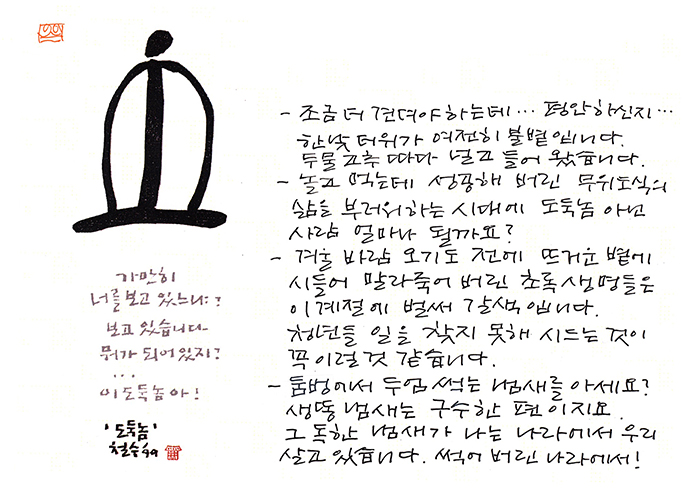 가만히
너를 보고 있느냐?
보고 있습니다.
뭐가 되어 있지?
...
이 도둑놈아!
'도둑놈'
철수 '99
- 조금 더 견뎌야 하는데… 평안하신지…
한낮 더위가 여전히 불볕입니다.
두물고추 따다 널고 들어 왔습니다.
- 놀고 먹는데 성공해 버린 무위도식의
삶을 부러워하는 시대에 도둑놈 아닌
사람 얼마나 될까요?
- 겨울 바람 오기도 전에 뜨거운 볕에
시들어 말라죽어 버린 초록 생명들은
이 계절에 벌써 갈색입니다.
청년들 일을 찾지 못해 시드는 것이
꼭 이럴 것 같습니다.
- 둠벙에서 두엄 썩는 냄새를 아세요?
생똥 냄새는 구수한 편이지요.
그 독한 냄새가 나는 나라에서 우리
살고 있습니다. 썩어 버린 나라에서!